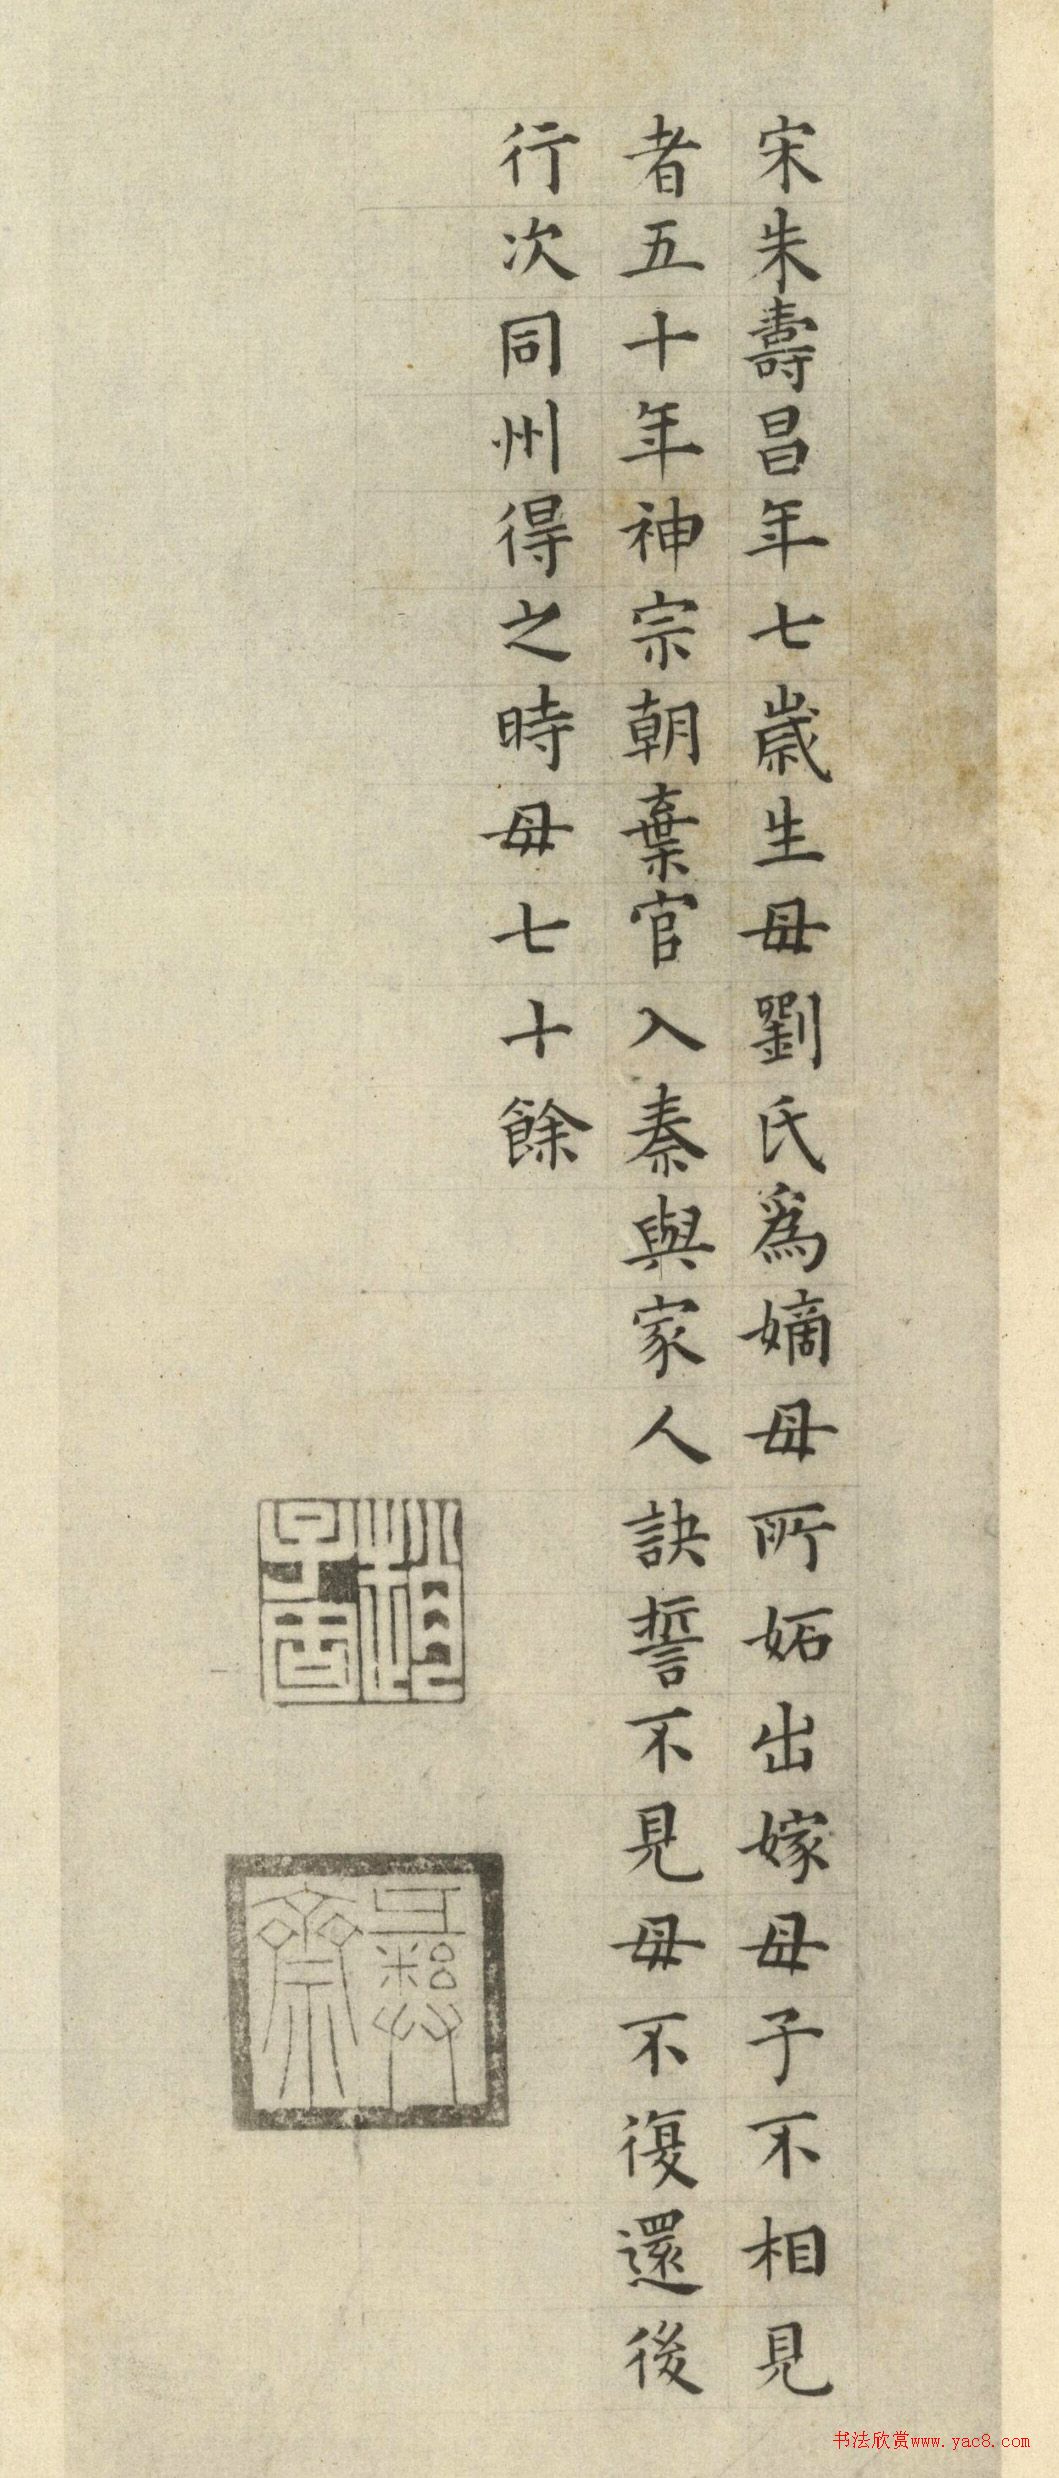 宋朱壽昌年七歲生母劉氏爲嫡母所妬出嫁母子不相見
者五十年神宗朝棄官入秦與家人訣誓不見母不復還後
行次同州得之時母七十餘
书法欣赏www.yac8.com